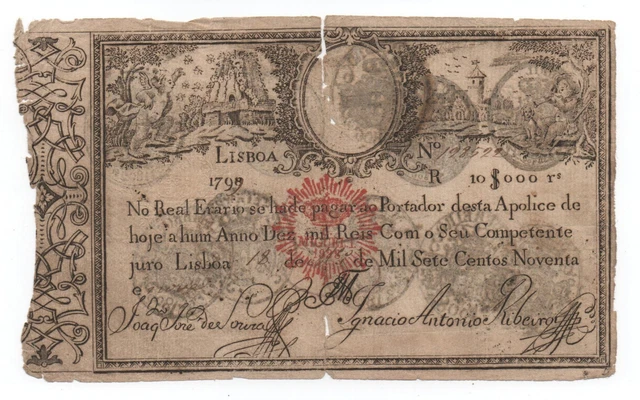 LISBOA Nº
179 R 10$000 rs
No Real Erário se hade pagar ao Portador desta Apolice de
hoje a hum Anno Dez mil Reis Com o Seu Competente
juro Lisboa 18 de de Mil Sete Centos Noventa
e
Joaq José de Souza Ignacio Antonio Ribeiro